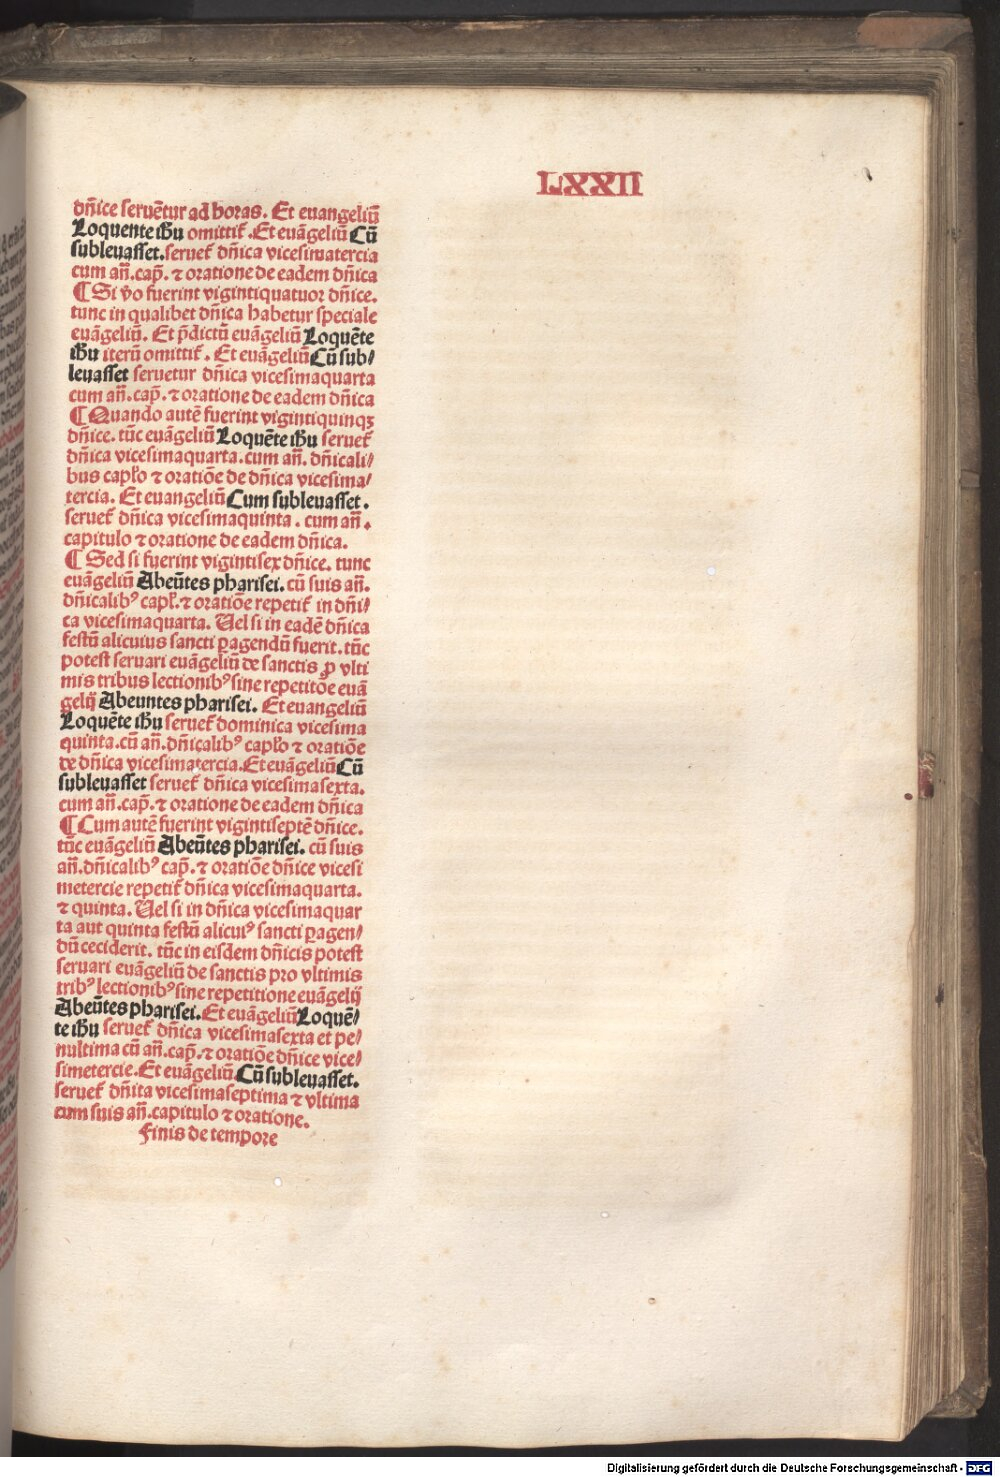 LXXII
dn̄ice seruētur ad horas. Et euangeliū
Loquente ih̄u omittit᷑. Et euāgeliū Cū
subleuasset. seruet᷑ dn̄ica vicesimatercia
cum añ. cap̄. ⁊ oratione de eadem dn̄ica
¶ Si v̄o fuerint vigintiquatuor dn̄ice.
tunc in qualibet dn̄ica habetur speciale
euāgeliū. Et p̄dictū euāgeliū Loquēte
ih̄u iterū omittit᷑. Et euāgeliū Cū sub⸗
leuasset seruetur dn̄ica vicesimaquarta
cum añ. cap̄. ⁊ oratione de eadem dn̄ica
¶ Quando autē fuerint vigintiquinqꝫ
dn̄ice. tūc euāgeliū Loquēte ih̄u seruet᷑
dn̄ica vicesimaquarta. cum añ. dn̄icali⸗
bus capl̓o ⁊ oratiōe de dn̄ica vicesima⸗
tercia. Et euangeliū Cum subleuasset.
seruet᷑ dn̄ica vicesimaquinta. cum añ.
capitulo ⁊ oratione de eadem dn̄ica.
¶ Sed si fuerint vigintisex dn̄ice. tunc
euāgeliū Abeūtes pharisei. cū suis añ.
dn̄icalibꝰ capl̓. ⁊ oratiōe repetit᷑ in dn̄i⸗
ca vicesimaquarta. Uel si in eadē dn̄ica
festū alicuius sancti ꝑagendū fuerit. tūc
potest seruari euāgeliū de sanctis ꝓ vlti
mis tribus lectionibꝰ sine repetitōe euā
gelij Abeuntes pharisei. Et euangeliū
Loquēte ih̄u seruet᷑ dominica vicesima
quinta. cū añ. dn̄icalibꝰ capl̓o ⁊ oratiōe
de dn̄ica vicesimatercia. Et euāgeliū Cū
subleuasset seruet᷑ dn̄ica vicesimasexta.
cum añ. cap̄. ⁊ oratione de eadem dn̄ica
¶ Cum autē fuerint vigintiseptē dn̄ice.
tūc euāgeliū Abeūtes pharisei. cū suis
añ. dn̄icalibꝰ cap̄. ⁊ oratiōe dn̄ice vicesi
metercie repetit᷑ dn̄ica vicesimaquarta.
⁊ quinta. Uel si in dn̄ica vicesimaquar
ta aut quinta festū alicuiꝰ sancti ꝑagen⸗
dū ceciderit. tūc in eisdem dn̄icis potest
seruari euāgeliū de sanctis pro vltimis
tribꝰ lectionibꝰ sine repetitione euāgelij
Abeūtes pharisei. Et euāgeliū Loquē⸗
te ih̄u seruet᷑ dn̄ica vicesimasexta et pe⸗
nultima cū añ. cap̄. ⁊ oratiōe dn̄ice vice⸗
simetercie. Et euāgeliū. Cū subleuasset.
seruet᷑ dn̄ita vicesimaseptima ⁊ vltima
cum suis añ. capitulo ⁊ oratione.
Finis de tempore
Digitalisierung gefördert durch die Deutsche Forschungsgemeinschaft - DFG